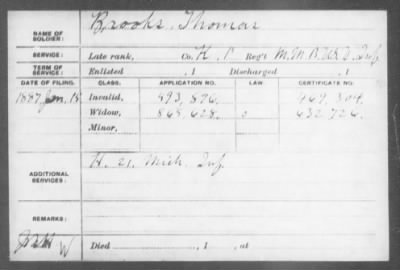 Brooks, Thomas
NAME OF SOLDIER:
SERVICE: Late rank, Co. K, Reg't Inf.
TERM OF SERVICE: Enlisted , 1 Discharged , 1
DATE OF FILING. CLASS. APPLICATION NO. LAW CERTIFICATE NO.
1887 Jan. 15 Invalid, 593,896
Widow, 865,628 632,726
Minor,
ADDITIONAL SERVICES: H. 21, Mich. Inf.
REMARKS:
W Died , 1 , at